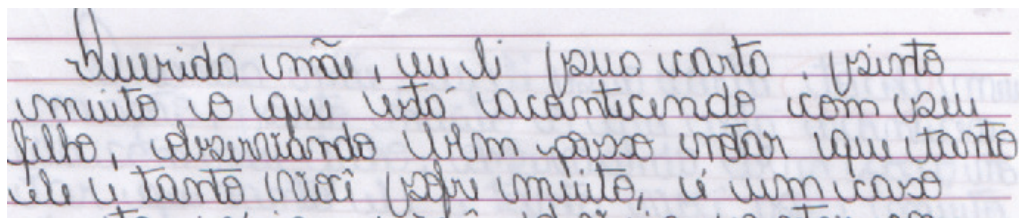 Querida mãe, eu li sua carta. sinto
muito o que está acontecendo com seu
filho, observando bem posso notar que tanto
ele e tanto você sofre muito, é um caso